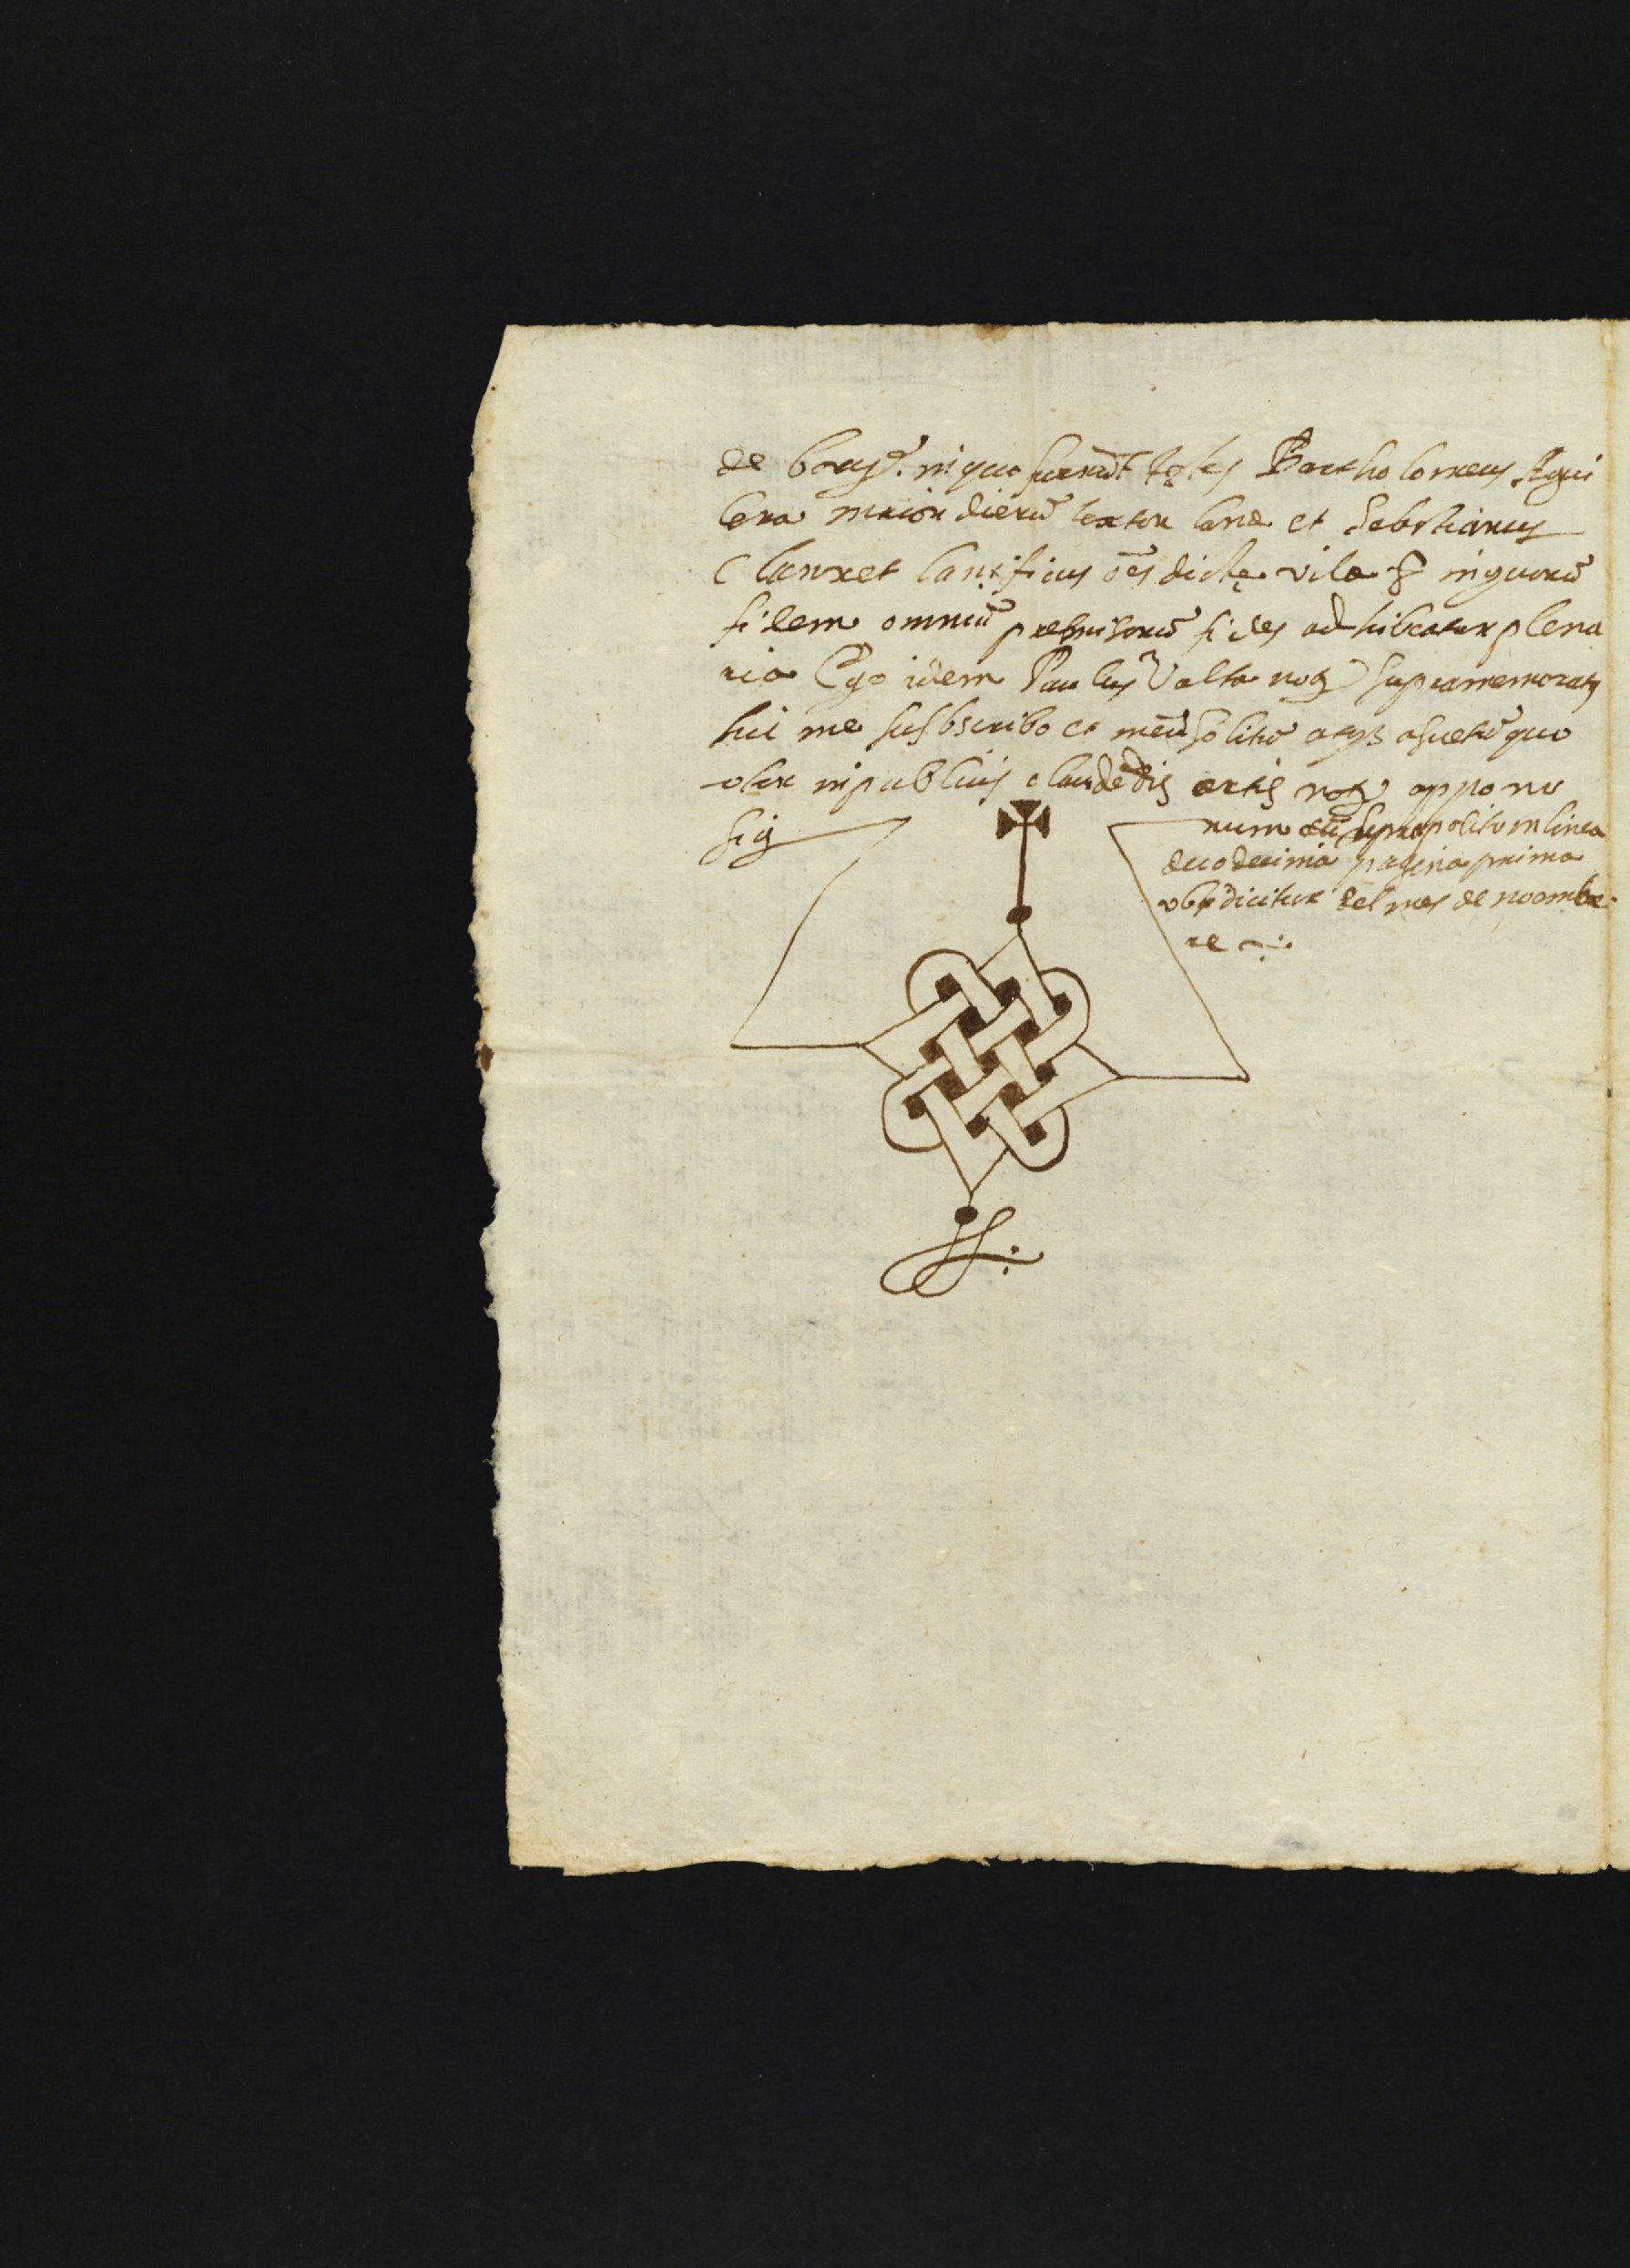 de borts. in quo fuerũt tẹ̄tes Bartholomeus Agui
lera maior dierũ textor lane et Sebstianus
Clauxet lanificus ōes dictę vile & in quorũ
fidem omniũ premisorũ fides adhibeatur plena
ria Ego idem Paulus Valta notẽ supramemoratꝯ
hic me susbscribo et meũ solitũ atqꝫ asuetũ quo
utor in publicis claudēdis artis notẽ appono
sig num cũ supraposito in linea
duodecima pagina prima
ubi dicitur del mes de noembre
re